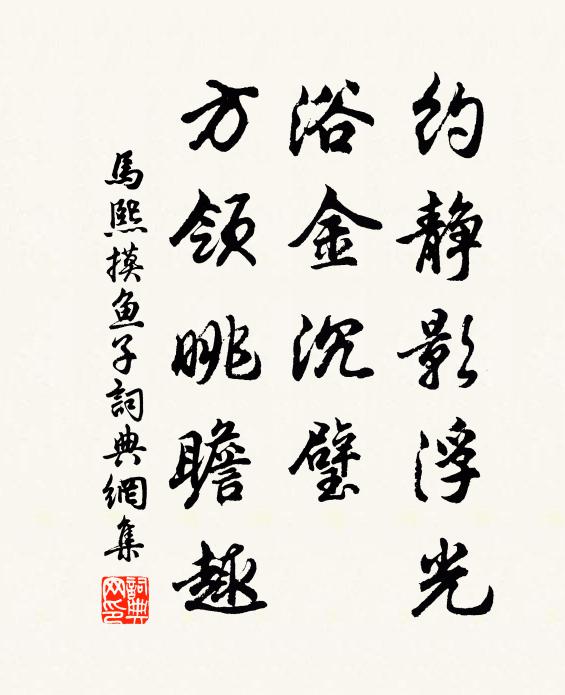 约静影浮光
浴金沉璧
方領眺瞻趣
馬熙摸魚子詞典網集
詞典網印